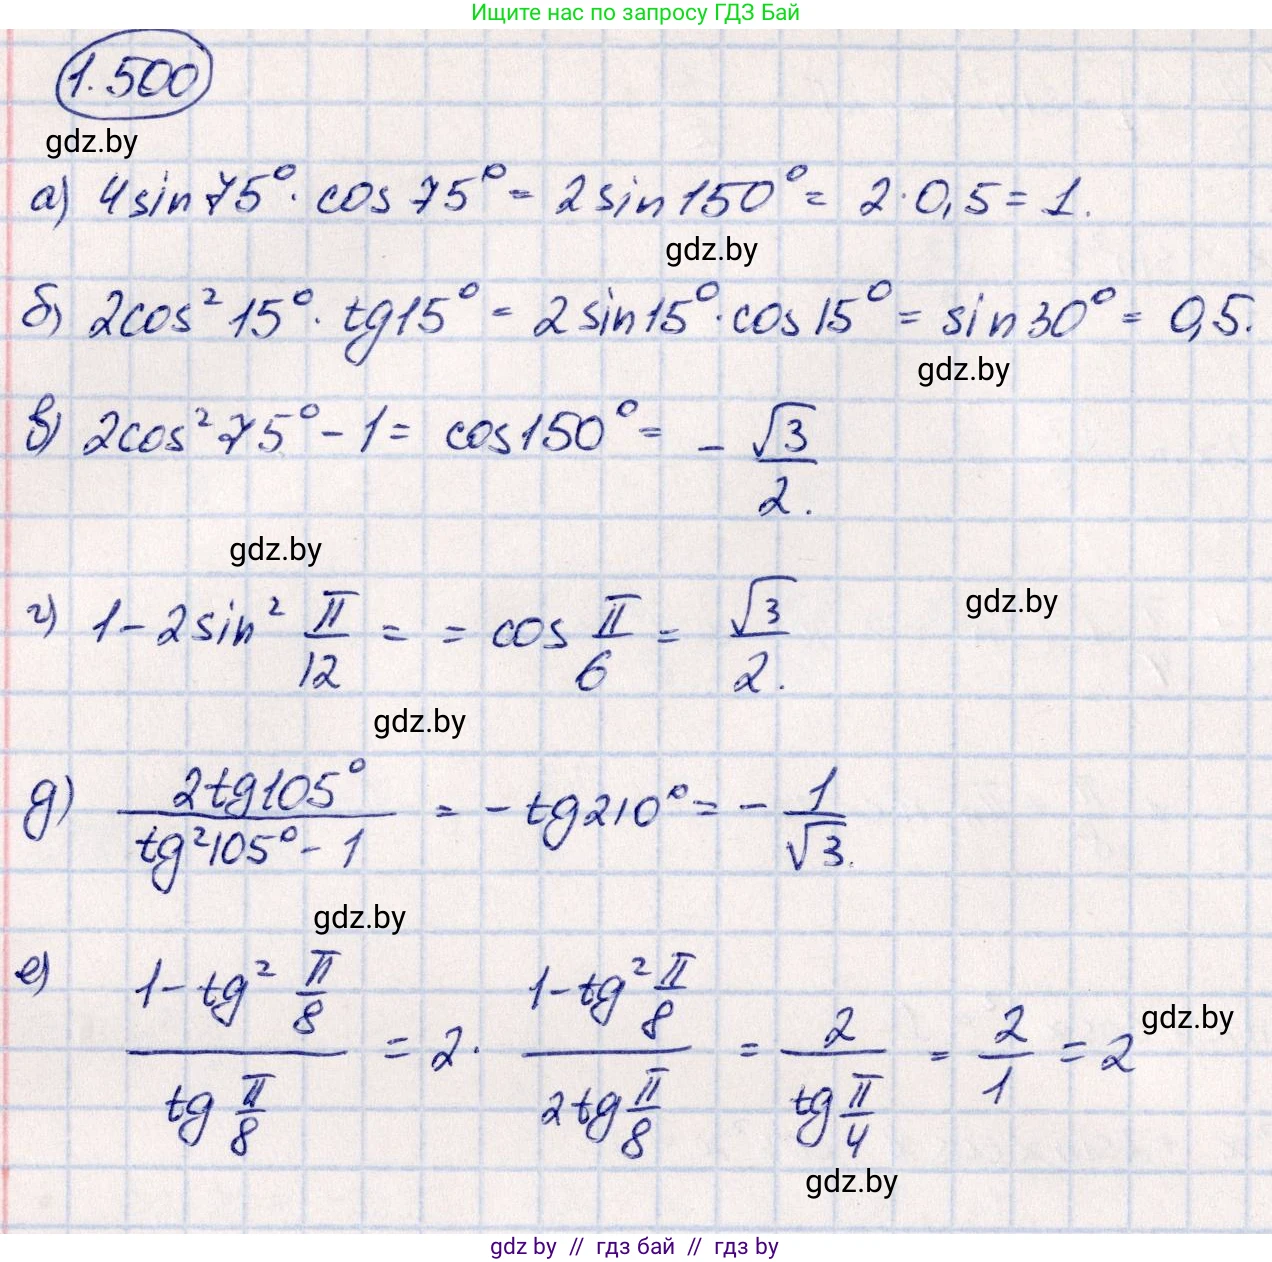 Ищите нас по запросу ГДЗ Бай
1.500
gdz.by
а) 4sin75°·cos75° = 2sin150° = 2·0,5 = 1.
gdz.by
б) 2cos²15°·tg15° = 2sin15°·cos15° = sin30° = 0,5.
gdz.by
в) 2cos²75° - 1 = cos150° = - √3/2.
gdz.by
г) 1 - 2sin² π/12 = = cos π/6 = √3/2.
gdz.by
gdz.by
д) 2tg105°/(tg²105° - 1) = - tg210° = - 1/√3.
gdz.by
е) (1 - tg² π/8)/(tg π/8) = 2· (1 - tg² π/8)/(2tg π/8) = 2/(tg π/4) = 2/1 = 2
gdz.by
gdz.by
gdz by // гдз бай // гдз by